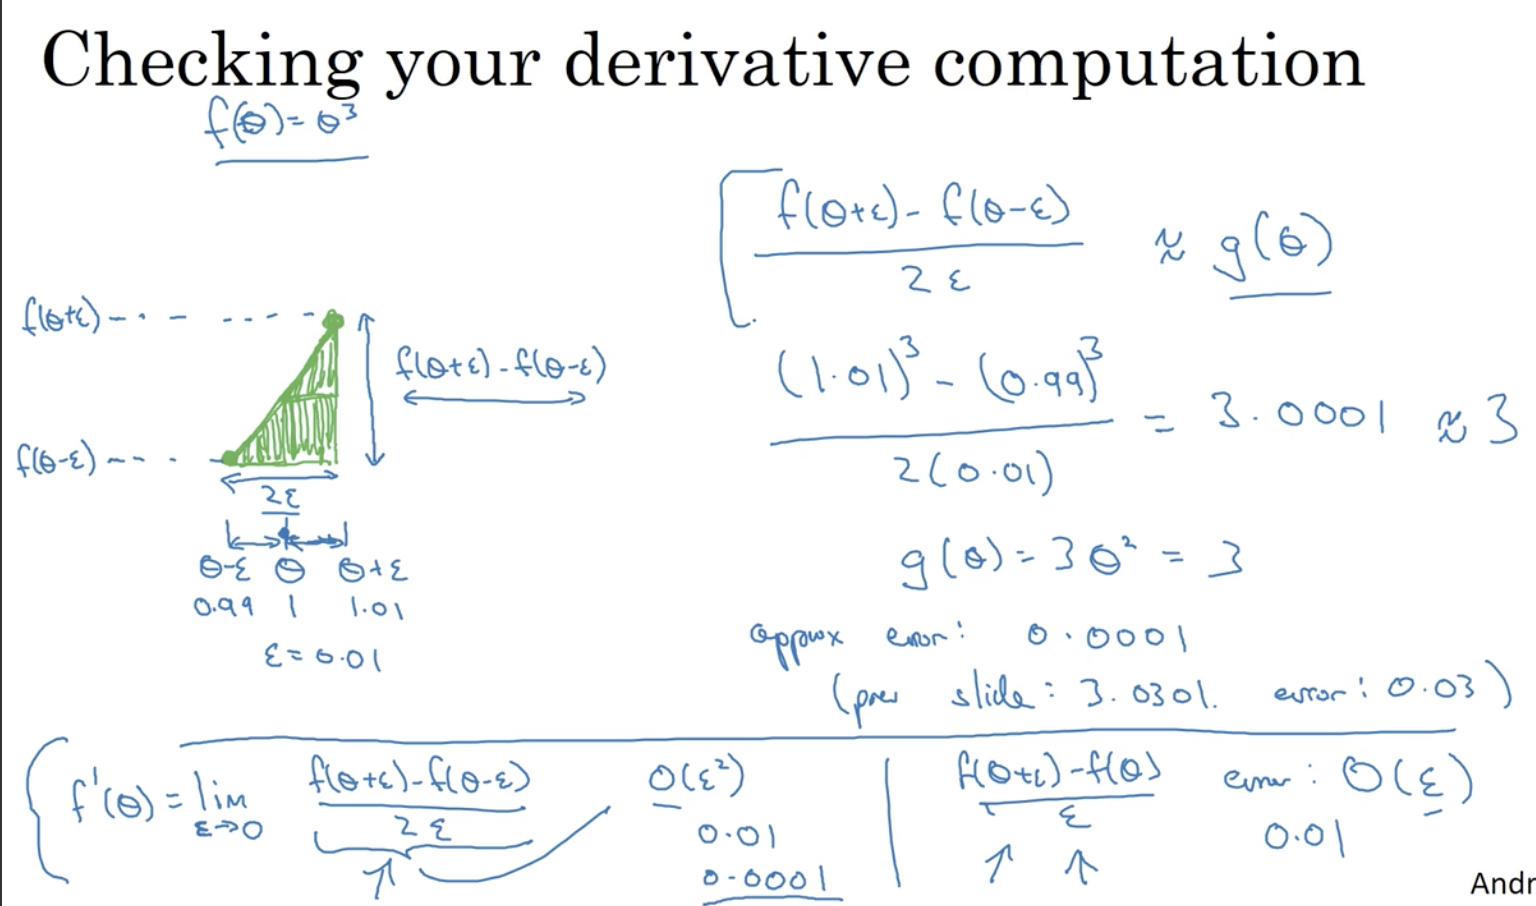 Checking your derivative computation
f(θ) = θ³
[ f(θ+ε) - f(θ-ε) / 2ε ≈ g(θ)
f(θ+ε)
f(θ+ε) - f(θ-ε)
(1.01)³ - (0.99)³ / 2(0.01) = 3.0001 ≈ 3
f(θ-ε)
2ε
θ-ε θ θ+ε
0.99 1 1.01
ε = 0.01
g(θ) = 3θ² = 3
approx error: 0.0001
(prev slide: 3.0301. error: 0.03)
f'(θ) = lim ε→0 f(θ+ε) - f(θ-ε) / 2ε
O(ε²)
0.01
0.0001
f(θ+ε) - f(θ) / ε
error: O(ε)
0.01
Andr